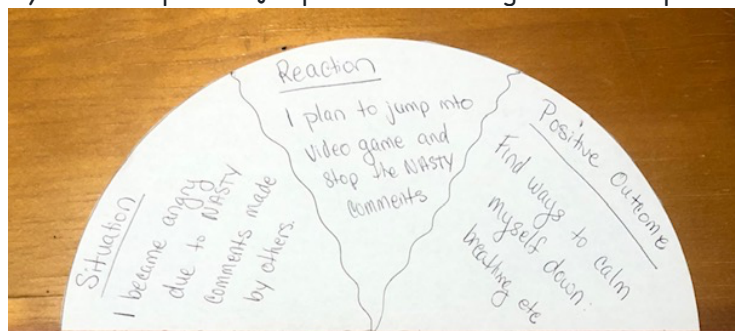 Situation
I became angry
due to NASTY
comments made
by others.
Reaction
I plan to jump into
video game and
stop the NASTY
comments
Positive Outcome
Find ways to calm
myself down:
breathing etc